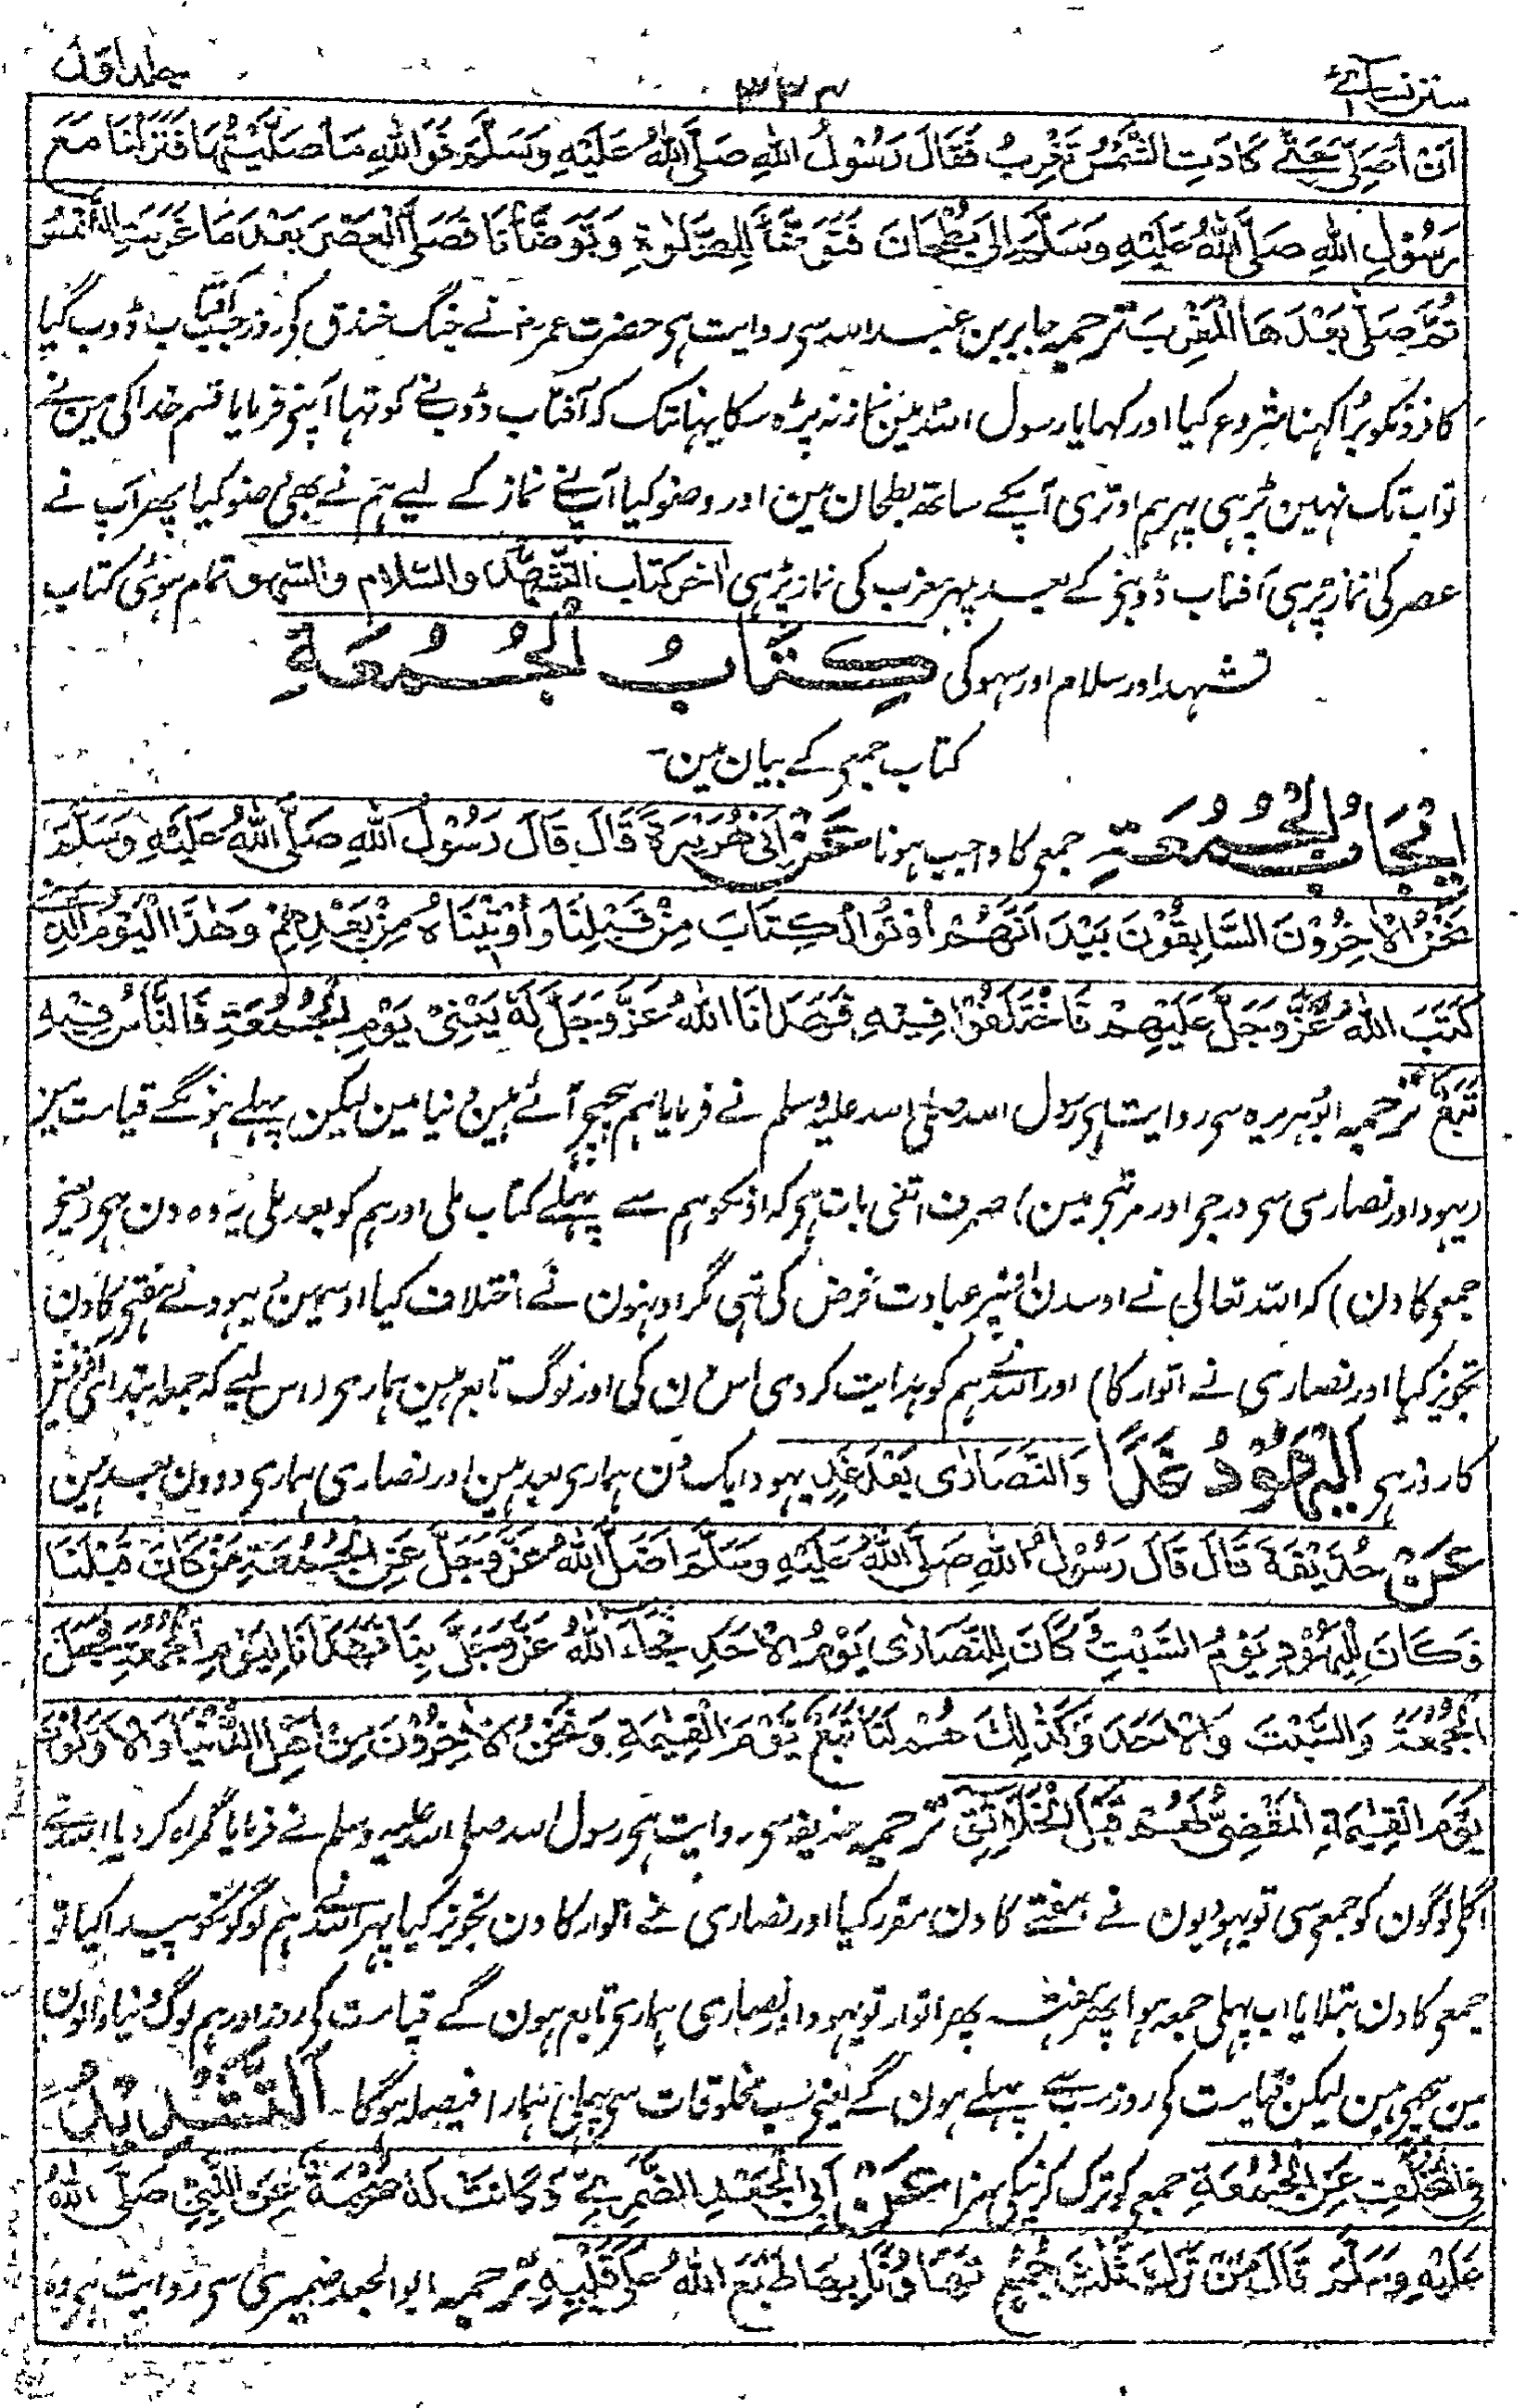 سنن نسائی ۳۳۴ جلد اول
اَنْ اُصَلِّیَ حَتّٰی کَادَتِ الشَّمْسُ تَغْرِبُ فَقَالَ رَسُوْلُ اللهِ صَلَّی اللهُ عَلَیْهِ وَسَلَّمَ فَوَاللهِ مَا صَلَّیْتُهَا فَنَزَلْنَا مَعَ
رَسُوْلِ اللهِ صَلَّی اللهُ عَلَیْهِ وَسَلَّمَ اِلٰی بُطْحَانَ فَتَوَضَّأَ لِلصَّلٰوةِ وَتَوَضَّأْنَا فَصَلَّی الْعَصْرَ بَعْدَ مَا غَرَبَتِ الشَّمْسُ
ثُمَّ صَلّٰی بَعْدَهَا الْمَغْرِبَ ترجمہ جابر بن عبد اللہ سی روایت ہی حضرت عمرؓ نے جنگ خندق کی روز جب آفتاب ڈوب گیا
کافرونکو بُرا کہنا شروع کیا اور کہا یا رسول اللہ مین نماز نہ پڑہ سکا یہانتک کہ آفتاب ڈوبنے کو تہا آپنی فرمایا قسم خدا کی مین نے
تو ابتک نہین پڑہی پہر ہم اوتری آپکے ساتھ بطحان مین اور وضو کیا آپنے نماز کے لیے ہم نے بھی وضو کیا پھر آپ نے
عصر کی نماز پڑہی آفتاب ڈوبنی کے بعد پہر مغرب کی نماز پڑہی اٰخر کتاب التشهد والسلام والسهو تمام ہوئی کتاب
تشہد اور سلام اور سہو کی کِتَابُ الْجُمُعَةِ
کتاب جمعی کے بیان مین-
اِیْجَابُ الْجُمُعَةِ جمعی کا واجب ہونا عَنْ اَبِیْ هُرَیْرَةَ قَالَ قَالَ رَسُوْلُ اللهِ صَلَّی اللهُ عَلَیْهِ وَسَلَّمَ
نَحْنُ الْاٰخِرُوْنَ السَّابِقُوْنَ بَیْدَ اَنَّهُمْ اُوْتُوا الْکِتَابَ مِنْ قَبْلِنَا وَاُوْتِیْنَاهُ مِنْ بَعْدِهِمْ وَهٰذَا الْیَوْمُ الَّذِیْ
کَتَبَ اللهُ عَزَّ وَجَلَّ عَلَیْهِمْ فَاخْتَلَفُوْا فِیْهِ فَهَدَانَا اللهُ عَزَّ وَجَلَّ لَهٗ یَعْنِیْ یَوْمَ الْجُمُعَةِ فَالنَّاسُ فِیْهِ
تَبَعٌ ترجمہ ابوہریرہ سی روایت ہی رسول اللہ صلی اللہ علیہ وسلم نے فرمایا ہم پیچہی آئے ہین دنیا مین لیکن پہلے ہونگے قیامت مین
(یہود اور نصاری سی درجی اور مرتبی مین) صرف اتنی بات ہی کہ اونکو ہم سے پہلے کتاب ملی اور ہم کو بعد ملی یہ وہ دن ہی (یعنی
جمعی کا دن) کہ اللہ تعالی نے اوسدن انپر عبادت فرض کی تہی مگر اونہون نے اختلاف کیا اوسمین (یہود نے ہفتی کا دن
تجویز کیا اور نصاری نے اتوار کا) اور اللہ نے ہم کو ہدایت کردی اس دن کی اور لوگ تابع ہین ہماری (اس لیے کہ جمعہ ابتدائی آفرینش
کا روز ہی اَلْیَهُوْدُ غَدًا وَالنَّصَارٰی بَعْدَ غَدٍ یہود ایک دن ہماری بعد ہین اور نصاری ہماری دو دن بعد ہین
عَنْ حُذَیْفَةَ قَالَ قَالَ رَسُوْلُ اللهِ صَلَّی اللهُ عَلَیْهِ وَسَلَّمَ اَضَلَّ اللهُ عَزَّ وَجَلَّ عَنِ الْجُمُعَةِ مَنْ کَانَ قَبْلَنَا
فَکَانَ لِلْیَهُوْدِ یَوْمُ السَّبْتِ وَکَانَ لِلنَّصَارٰی یَوْمُ الْاَحَدِ فَجَاءَ اللهُ عَزَّ وَجَلَّ بِنَا فَهَدَانَا لِیَوْمِ الْجُمُعَةِ فَجَعَلَ
الْجُمُعَةَ وَالسَّبْتَ وَالْاَحَدَ وَکَذٰلِکَ هُمْ لَنَا تَبَعٌ یَّوْمَ الْقِیٰمَةِ وَنَحْنُ الْاٰخِرُوْنَ مِنْ اَهْلِ الدُّنْیَا وَالْاَوَّلُوْنَ
یَوْمَ الْقِیٰمَةِ الْمَقْضِیُّ لَهُمْ قَبْلَ الْخَلَائِقِ ترجمہ حذیفہ سی روایت ہی رسول اللہ صلی اللہ علیہ وسلم نے فرمایا گمراہ کر دیا اللہ نے
اگلی لوگون کو جمعی سی تو یہودیون نے ہفتے کا دن مقرر کیا اور نصاری نے اتوار کا دن تجویز کیا پہر اللہ نے ہم لوگونکو پیدا کیا تو
جمعی کا دن بتلایا اب پہلی جمعہ ہوا پہر ہفتہ پھر اتوار تو یہود اور نصاری ہماری تابع ہون گے قیامت کی روز اور ہم لوگ دنیا والون
مین پیچہی ہین لیکن قیامت کی روز سب سے پہلے ہون گے یعنی سب مخلوقات سی پہلی ہمارا فیصلہ ہوگا- اَلتَّشْدِیْدُ
فِی التَّخَلُّفِ عَنِ الْجُمُعَةِ جمعی کو ترک کرنیکی سزا عَنْ اَبِی الْجَعْدِ الضَّمْرِیِّ وَکَانَتْ لَهٗ صُحْبَةٌ عَنِ النَّبِیِّ صَلَّی اللهُ
عَلَیْهِ وَسَلَّمَ قَالَ مَنْ تَرَکَ ثَلٰثَ جُمَعٍ تَهَاوُنًا بِهَا طَبَعَ اللهُ عَلٰی قَلْبِهٖ ترجمہ ابو الجعد ضمیری سی روایت ہی وہ